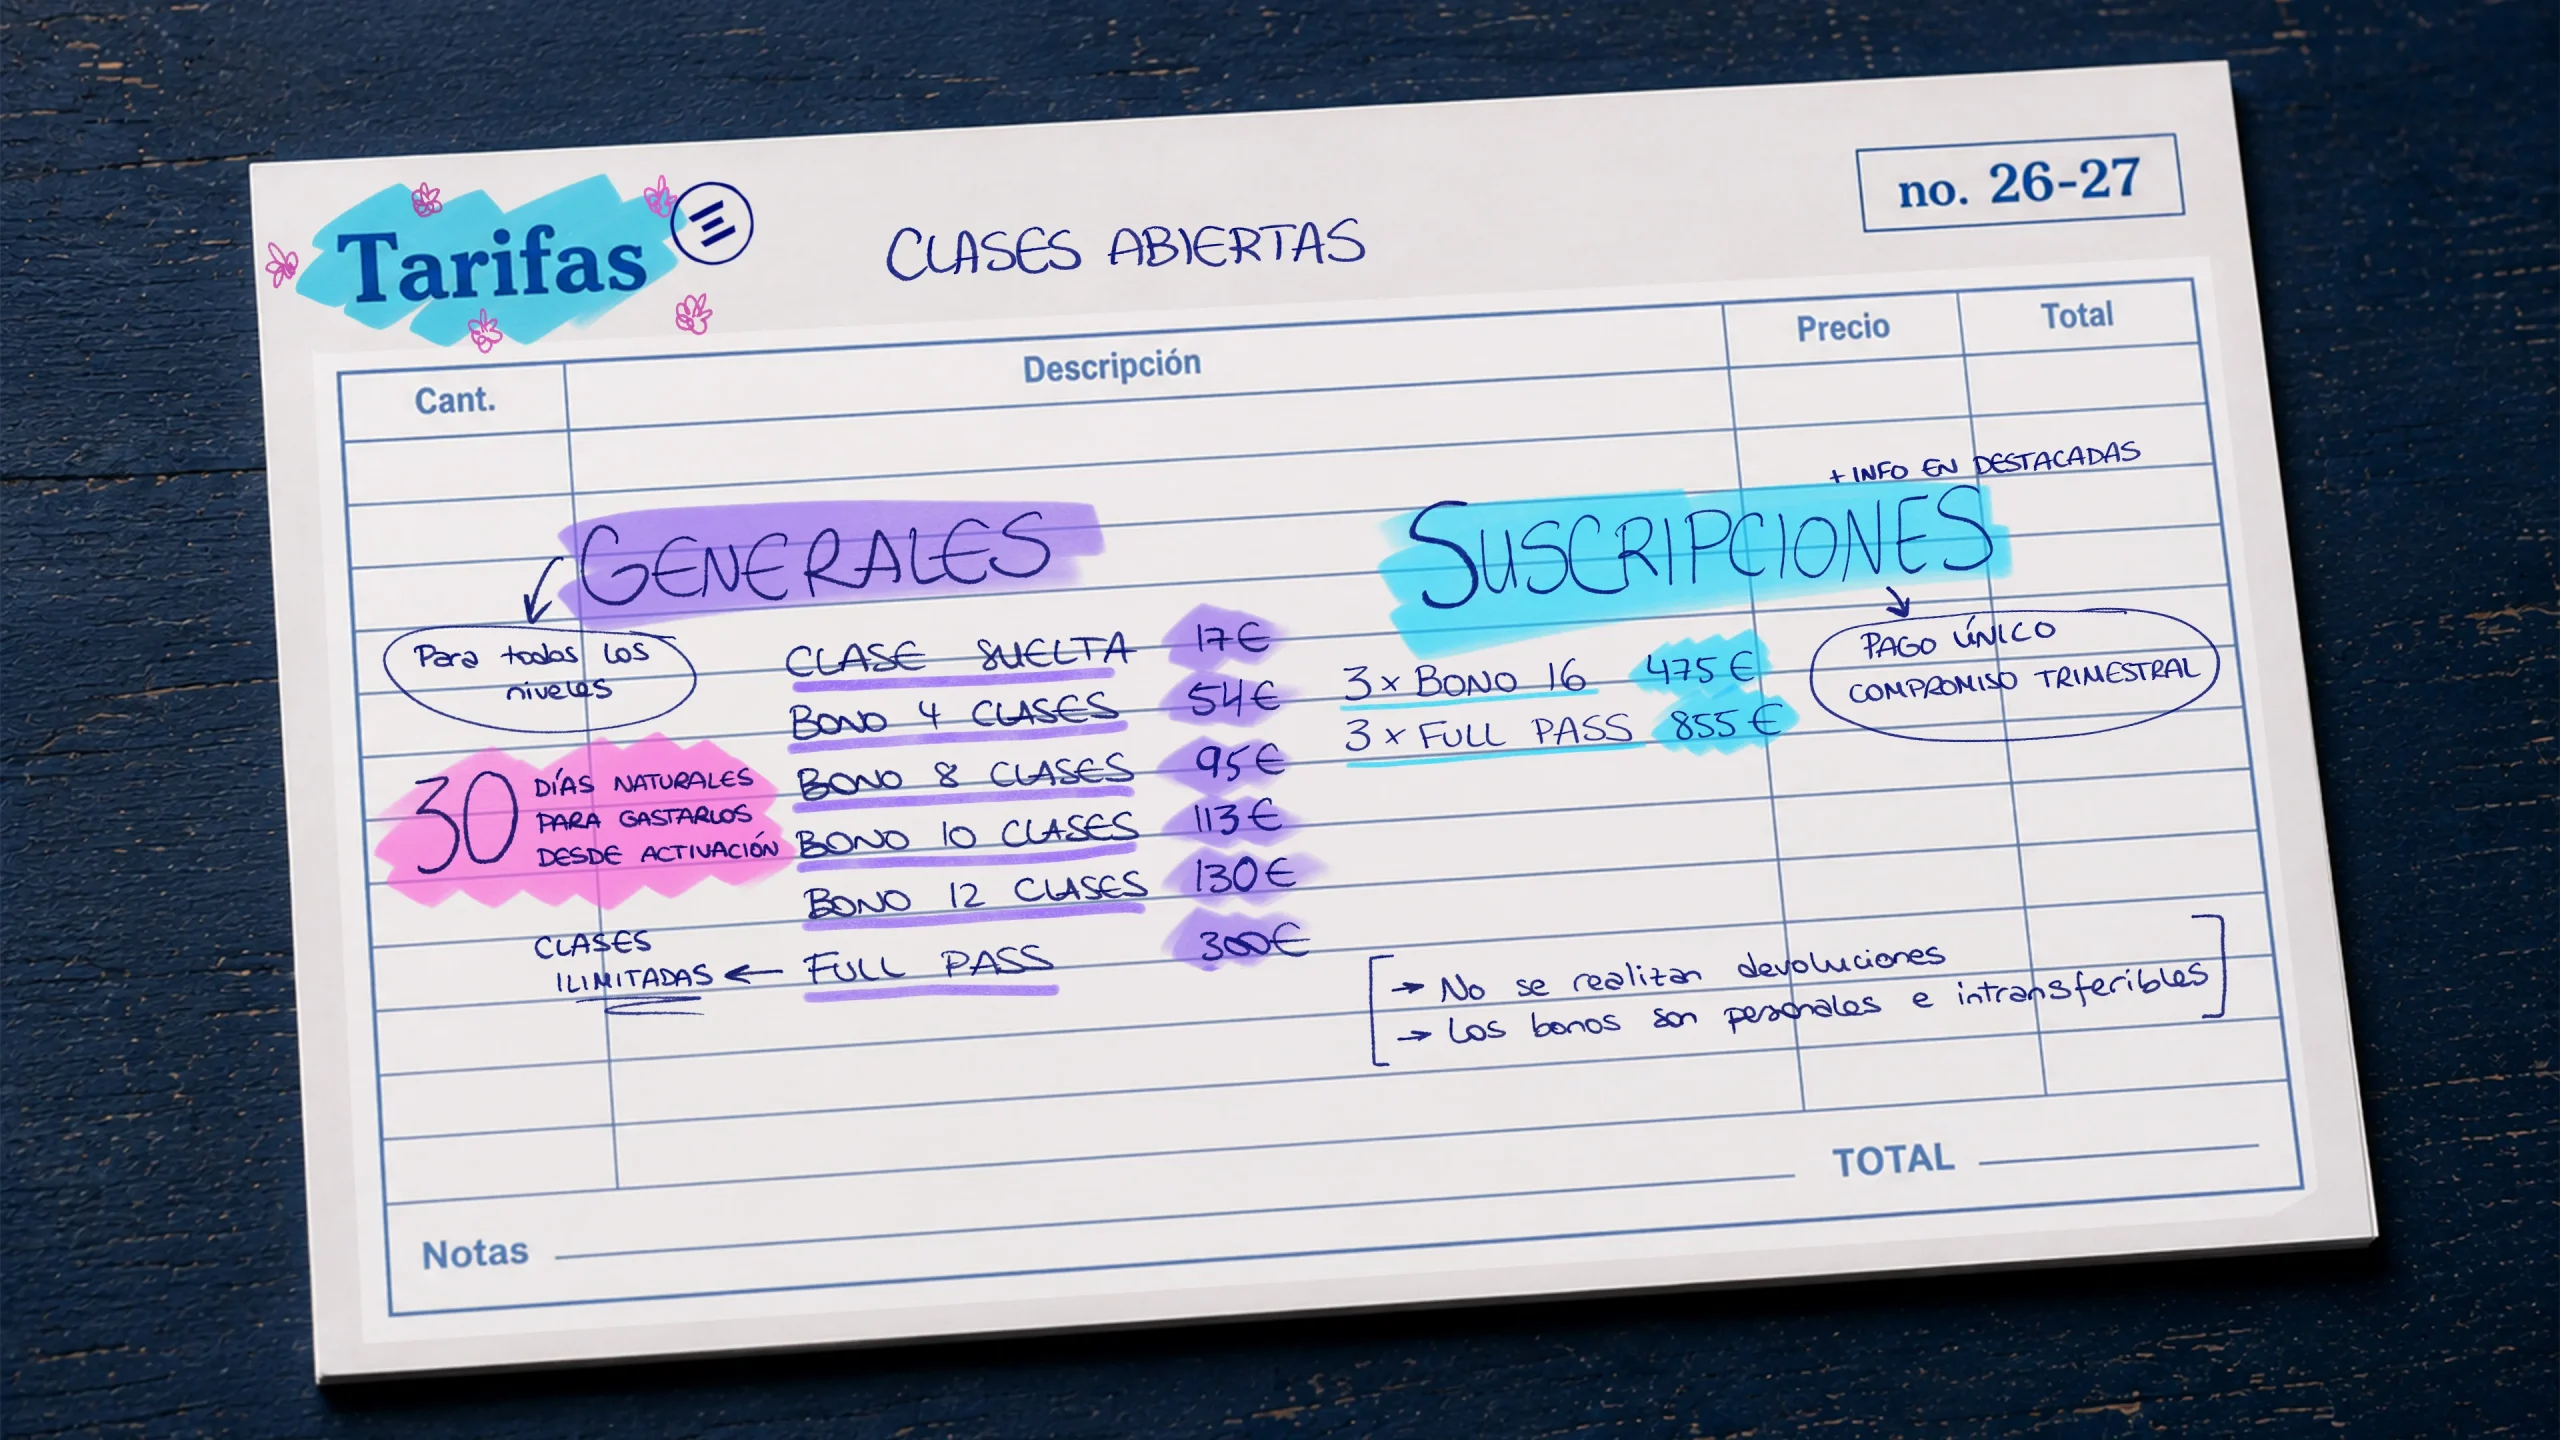 Tarifas
CLASES ABIERTAS
no. 26-27
Cant.
Descripción
Precio
Total
GENERALES
Para todos los
niveles
30
DÍAS NATURALES
PARA GASTARLOS
DESDE ACTIVACIÓN
CLASE SUELTA 17€
BONO 4 CLASES 54€
BONO 8 CLASES 95€
BONO 10 CLASES 113€
BONO 12 CLASES 130€
FULL PASS 300€
CLASES
ILIMITADAS
+ INFO EN DESTACADAS
SUSCRIPCIONES
3 x BONO 16 475€
3 x FULL PASS 855€
PAGO ÚNICO
COMPROMISO TRIMESTRAL
→ No se realizan devoluciones
→ Los bonos son personales e intransferibles
TOTAL
Notas